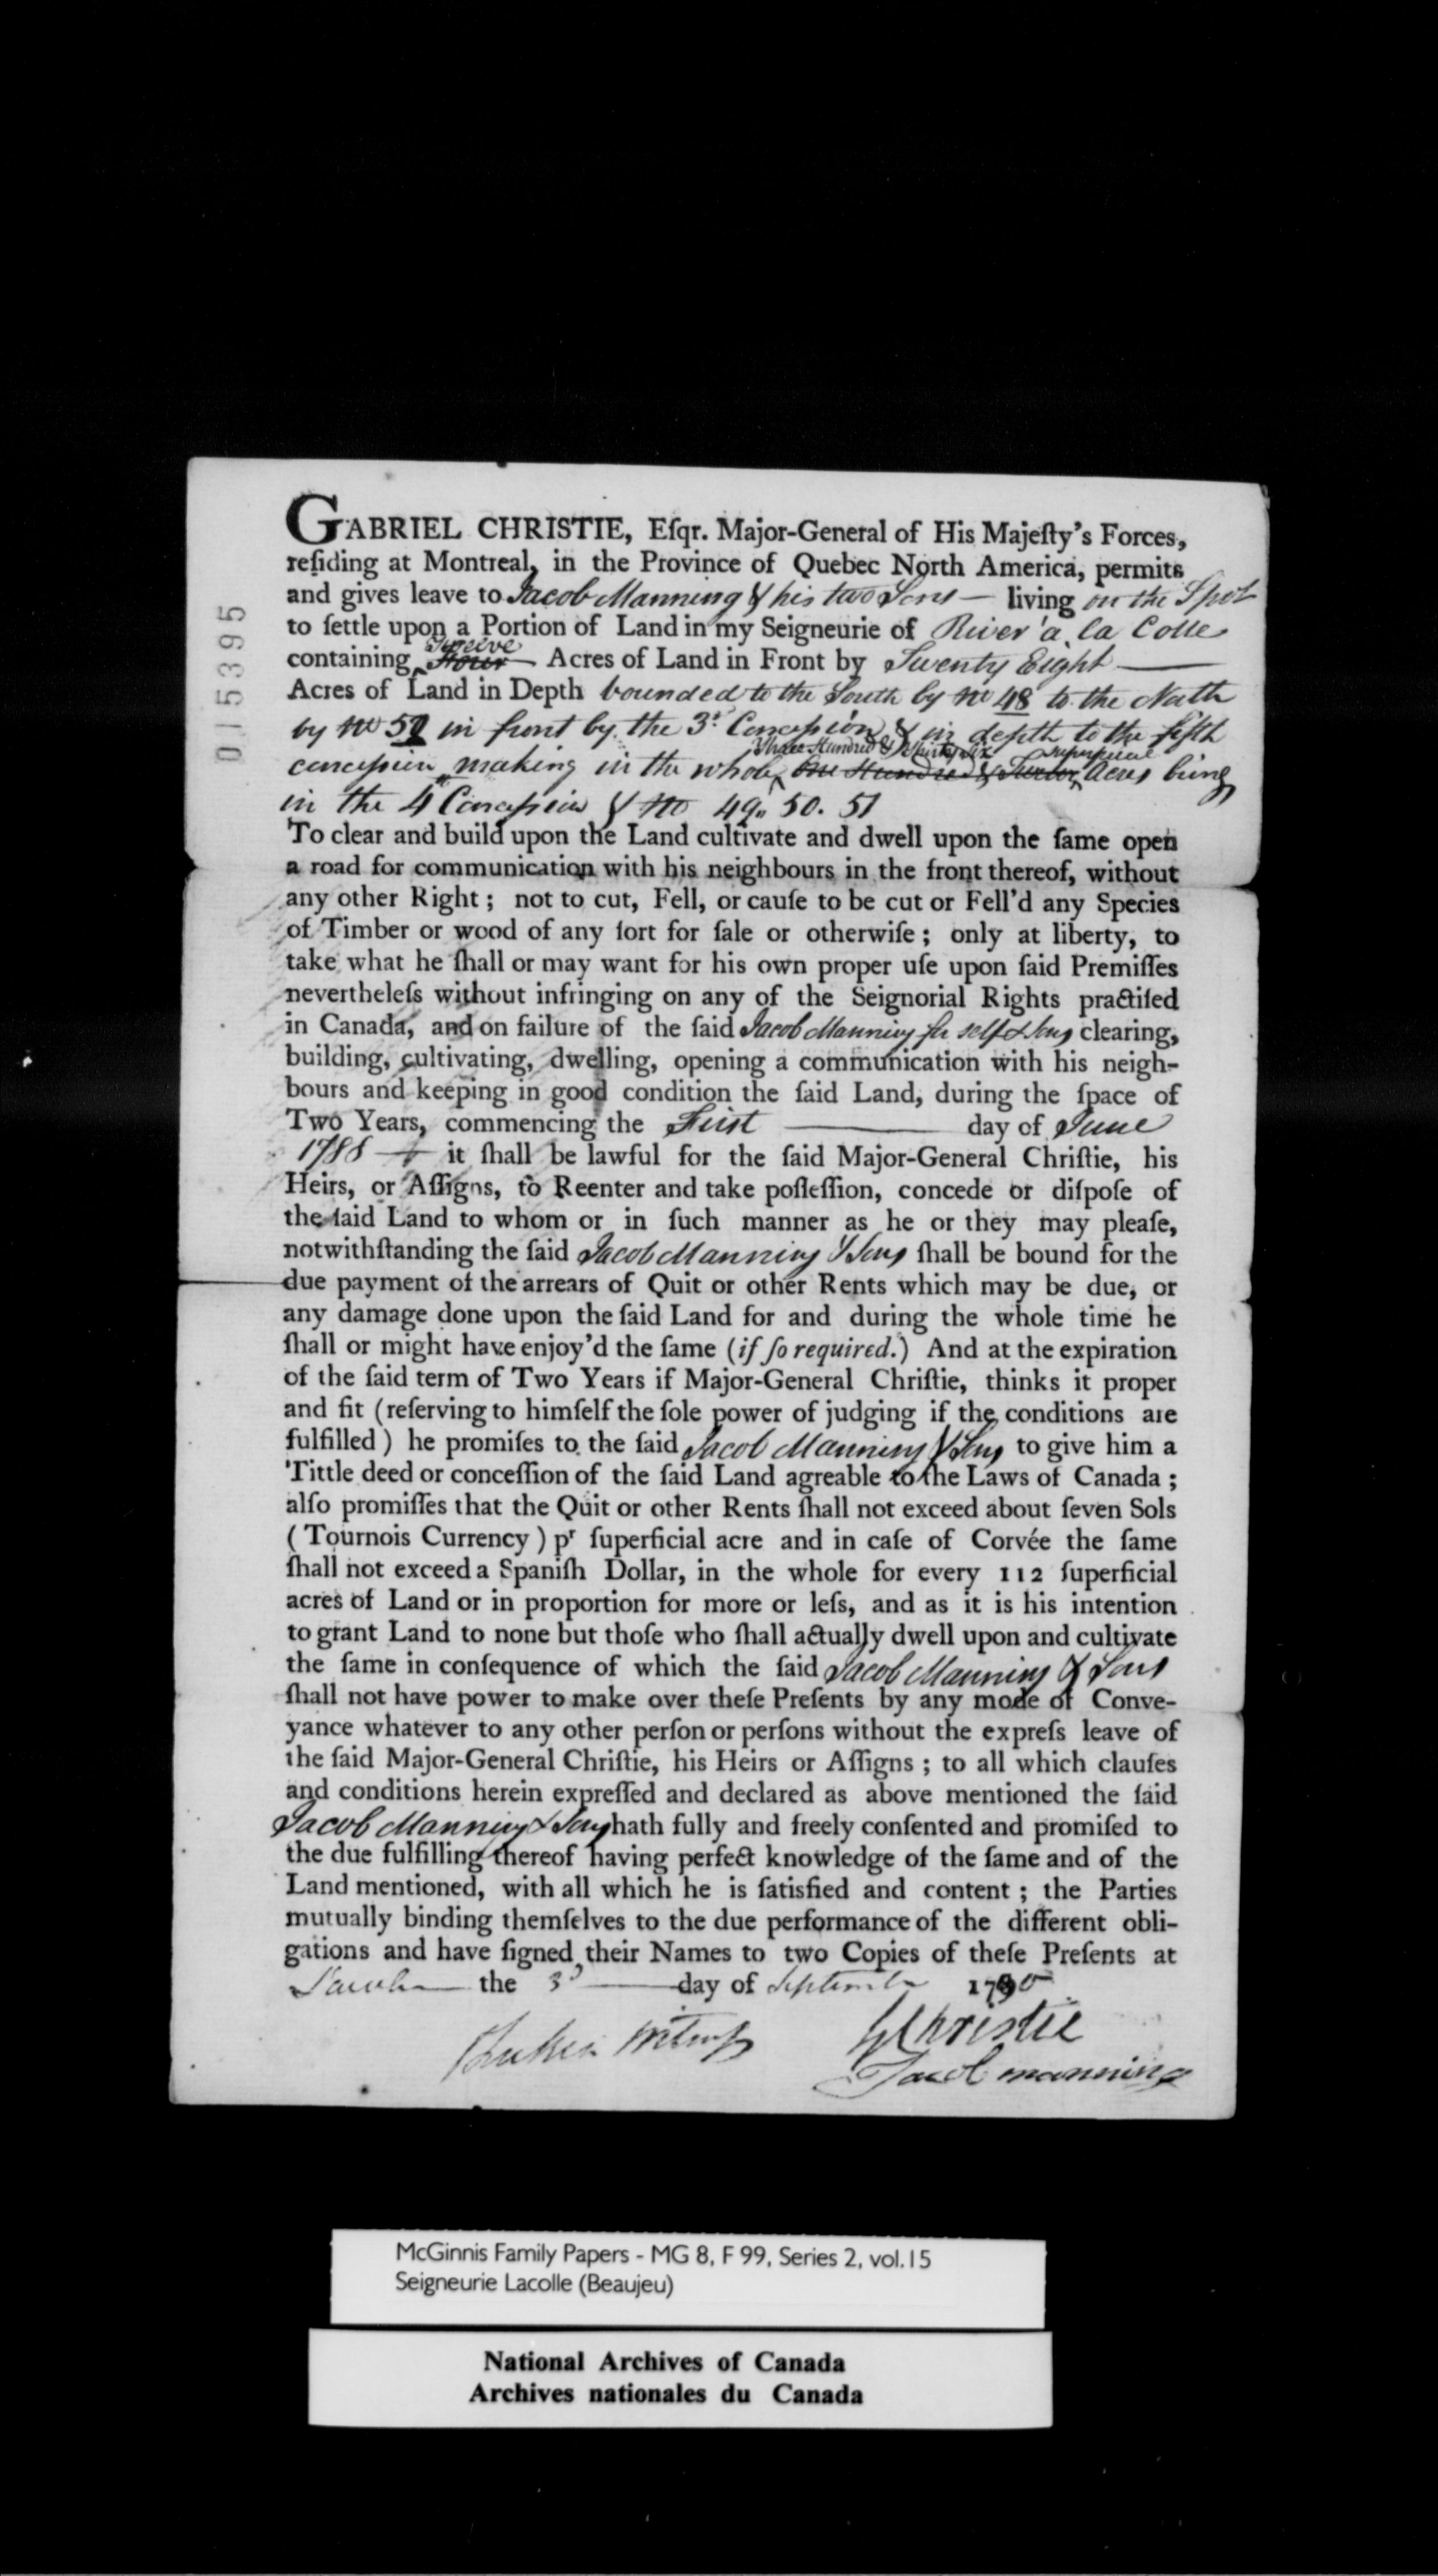 GABRIEL CHRISTIE, Eſqr. Major-General of His Majeſty's Forces,
reſiding at Montreal, in the Province of Quebec North America, permits
and gives leave to Jacob Manning & his two Sons — living on the Spot
to ſettle upon a Portion of Land in my Seigneurie of River a la Colle
Twelve
containing Four Acres of Land in Front by Twenty Eight
Acres of Land in Depth bounded to the South by No 48 to the North
by No 52 in front by the 3d Concession & in depth to the fifth
Three Hundred & Thirty Six Superficial
concession making in the whole One Hundred & Twelve Acres being
in the 4th Concession & No 49,, 50. 51
To clear and build upon the Land cultivate and dwell upon the ſame open
a road for communication with his neighbours in the front thereof, without
any other Right ; not to cut, Fell, or cauſe to be cut or Fell'd any Species
of Timber or wood of any ſort for ſale or otherwiſe ; only at liberty, to
take what he ſhall or may want for his own proper uſe upon ſaid Premiſſes
nevertheleſs without infringing on any of the Seignorial Rights practiſed
in Canada, and on failure of the ſaid Jacob Manning for self & Sons clearing,
building, cultivating, dwelling, opening a communication with his neigh-
bours and keeping in good condition the ſaid Land, during the ſpace of
Two Years, commencing the First day of June
1788 it ſhall be lawful for the ſaid Major-General Chriſtie, his
Heirs, or Aſſigns, to Reenter and take poſſeſſion, concede or diſpoſe of
the ſaid Land to whom or in ſuch manner as he or they may pleaſe,
notwithſtanding the ſaid Jacob Manning & Sons ſhall be bound for the
due payment of the arrears of Quit or other Rents which may be due, or
any damage done upon the ſaid Land for and during the whole time he
ſhall or might have enjoy'd the ſame (if ſo required.) And at the expiration
of the ſaid term of Two Years if Major-General Chriſtie, thinks it proper
and fit (reſerving to himſelf the ſole power of judging if the conditions are
fulfilled) he promiſes to the ſaid Jacob Manning & Sons to give him a
Tittle deed or conceſſion of the ſaid Land agreable to the Laws of Canada ;
alſo promiſſes that the Quit or other Rents ſhall not exceed about ſeven Sols
(Tournois Currency) pr ſuperficial acre and in caſe of Corvée the ſame
ſhall not exceed a Spaniſh Dollar, in the whole for every 112 ſuperficial
acres of Land or in proportion for more or leſs, and as it is his intention
to grant Land to none but thoſe who ſhall actually dwell upon and cultivate
the ſame in conſequence of which the ſaid Jacob Manning & Sons
ſhall not have power to make over theſe Preſents by any mode of Conve-
yance whatever to any other perſon or perſons without the expreſs leave of
the ſaid Major-General Chriſtie, his Heirs or Aſſigns ; to all which clauſes
and conditions herein expreſſed and declared as above mentioned the ſaid
Jacob Manning & Sons hath fully and freely conſented and promiſed to
the due fulfilling thereof having perfect knowledge of the ſame and of the
Land mentioned, with all which he is ſatisfied and content ; the Parties
mutually binding themſelves to the due performance of the different obli-
gations and have ſigned their Names to two Copies of theſe Preſents at
the 3d day of September 1790
GChristie
Jacob manning
015395
McGinnis Family Papers - MG 8, F 99, Series 2, vol.15
Seigneurie Lacolle (Beaujeu)
National Archives of Canada
Archives nationales du Canada